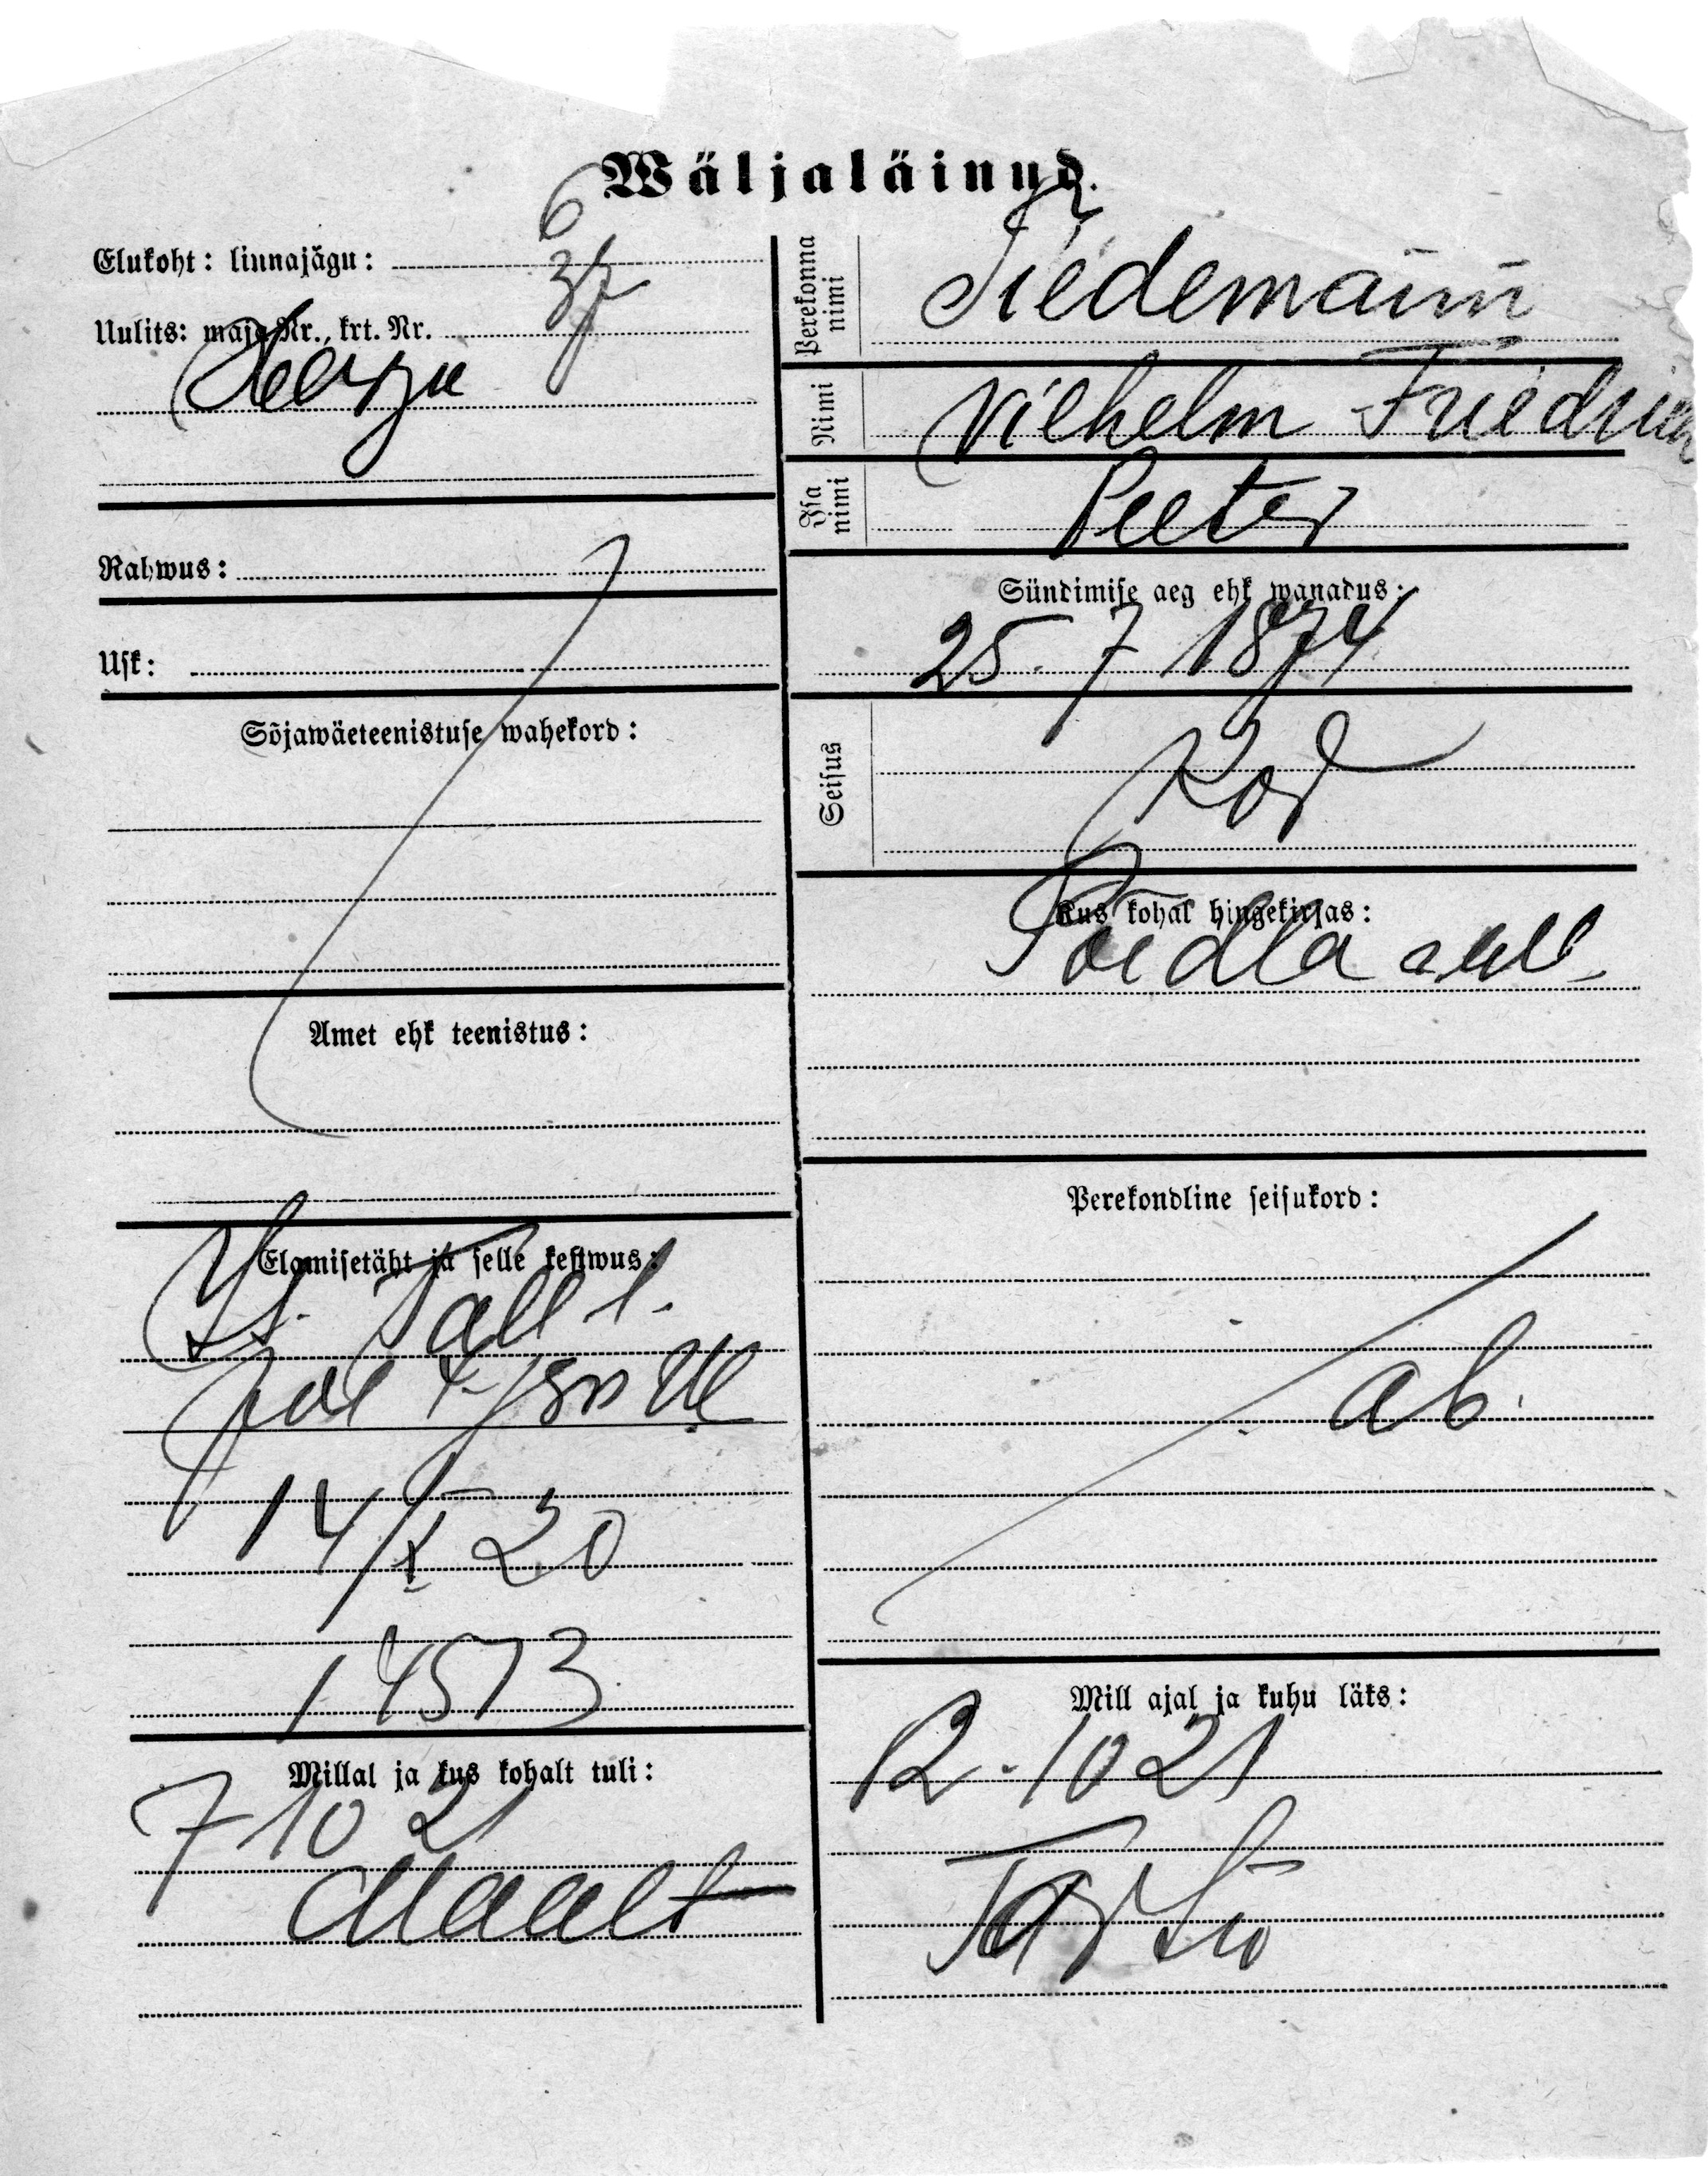 Wäljaläinud.
Elukoht: linnajägu: 6
Uulits: maja Nr., krt. Nr. 37
Harju
Rahwus:
Usk:
Sõjawäeteenistuse wahekord:
Amet ehk teenistus:
Elamisetäht ja selle kestwus:
Tall l.
pol 4 jsk
14/X 20
14573
Millal ja kus kohalt tuli:
7 10 21
Maalt
Perekonna nimi
Tiedemann
Nimi
Vilhelm Friedrich
Isa nimi
Peeter
Sündimise aeg ehk wanadus:
25. 7 1874
Seisus
Kod
Kus kohal hingekirjas:
Poidla
Perekondline seisukord:
ab.
Mill ajal ja kuhu läks:
12. 10 21
Tartu